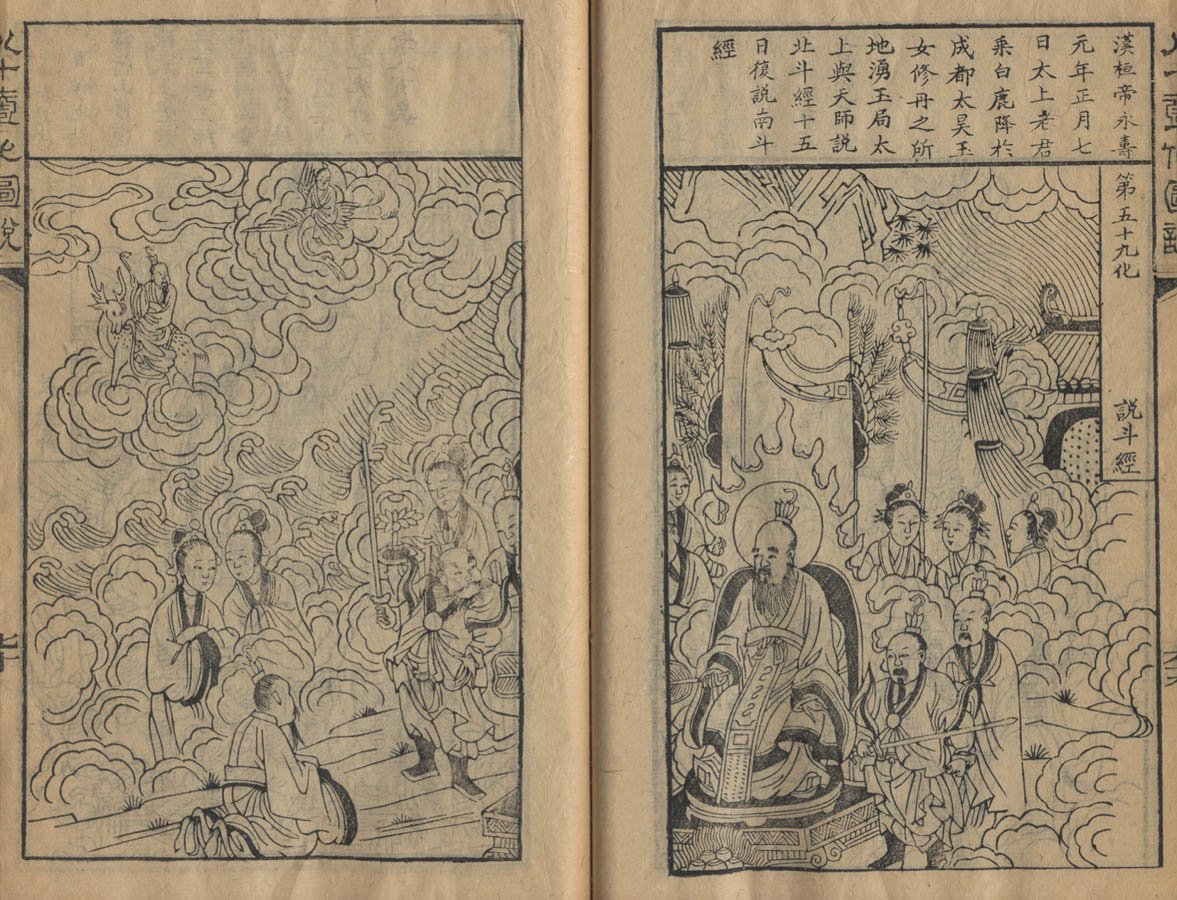 漢桓帝永壽
元年正月七
日太上老君
乘白鹿降於
成都太昊玉
女修丹之所
地湧玉局太
上與天師説
北斗經十五
日復説南斗
經
第五十九化
説斗經
化圖説